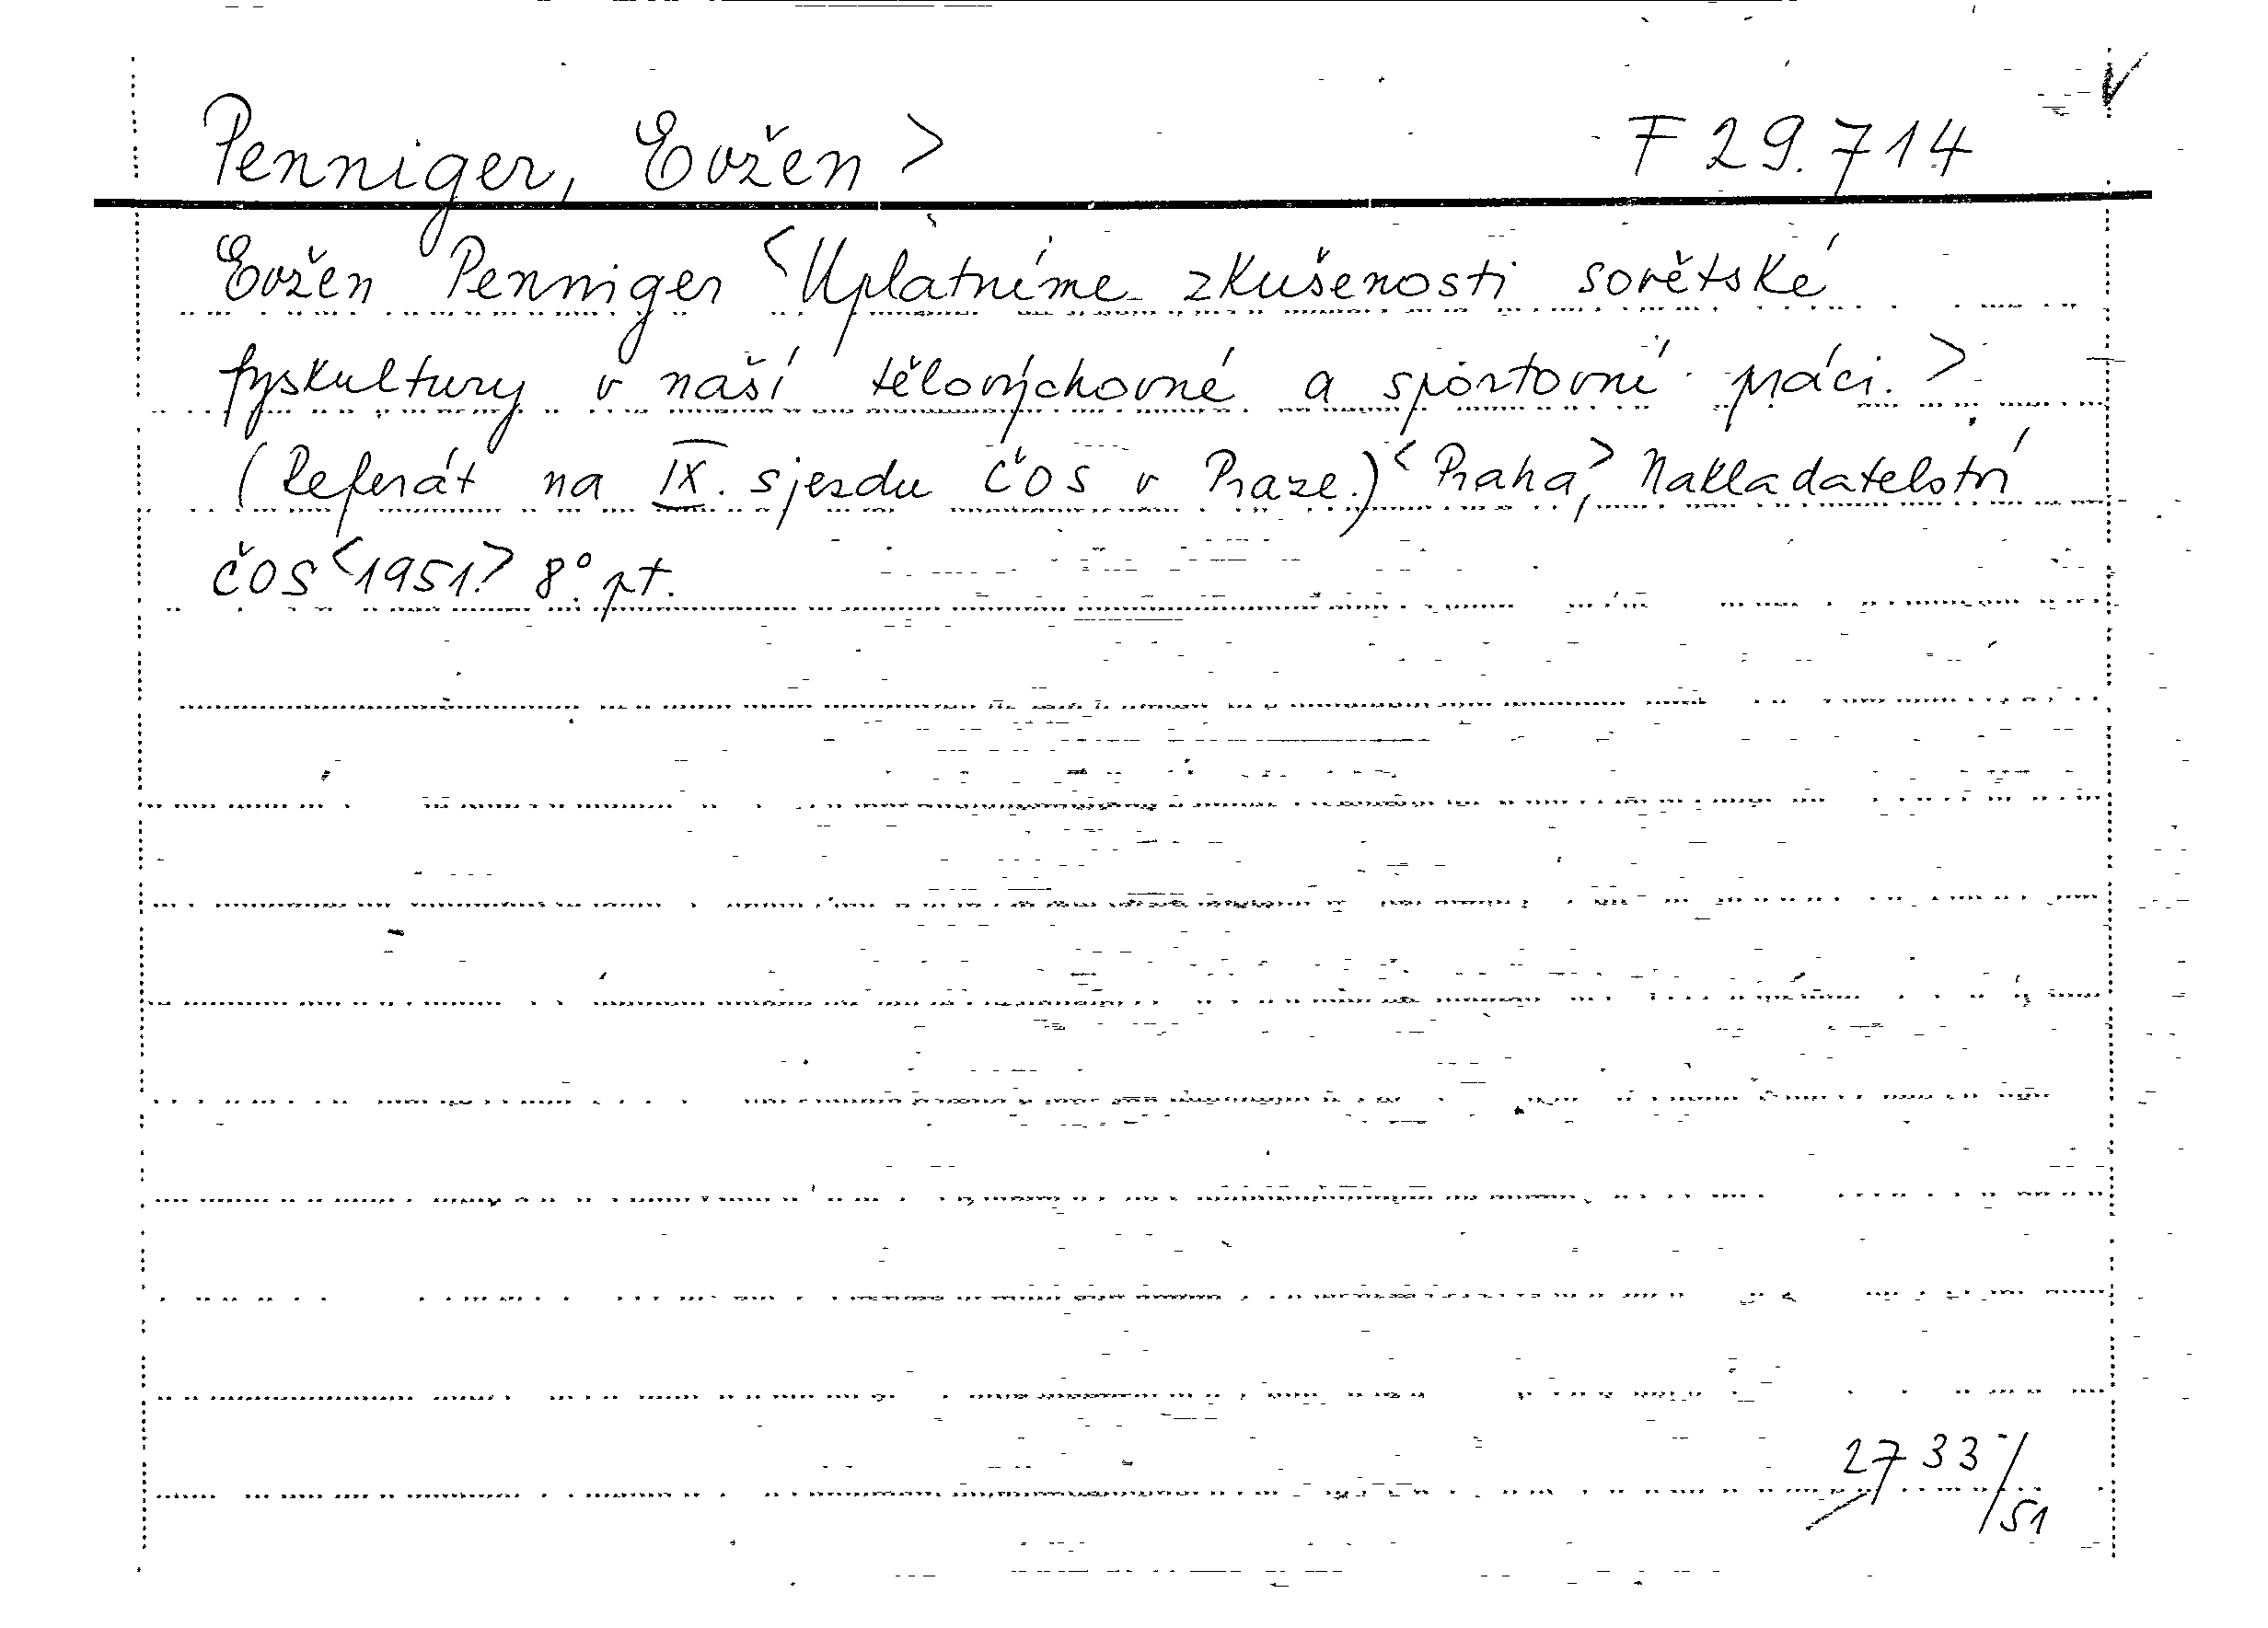 Penniger, Evžen > F 29.714
Evžen Penniger <Uplatníme zkušenosti sovětské
fyskultury v naší tělovýchovné a sportovní práci.>
(Referát na IX. sjezdu ČOS v Praze.) <Praha,> Nakladatelství
ČOS <1951.> 8°. pt.
2733/51